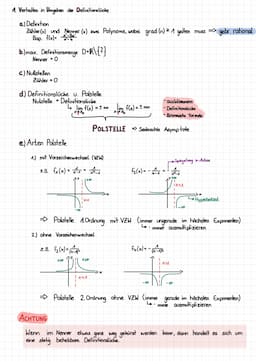 1. Verhalten in Umgebung der Definitionslücke
a.) Definition
Zähler (x) und Nenner (x) zwei Polynome, wobei grad (n) ≥ 1 gelten muss ⇒ gebr. rational
Bsp. f(x) =
b.) max. Definitionsmenge D=ℝ\{?}
Nenner = 0
c.) Nullstellen
Zähler = 0
d.) Definitionslücke u. Polstelle
Nullstelle ≠ Definitionslücke
lim f(x) = ± ∞
lim f(x) = ± ∞
- Definitionslücke
POLSTELLE ⇒ Senkrechte Asymptote
e.) Arten Polstelle
1.) mit Vorzeichenwechsel (VZW)
z.B. f₁(x) =
f₂(x) = -
⇒ Polstelle 1.Ordnung mit VZW (immer ungerade im höchsten Exponenten)
immer ausmultiplizieren
2.) ohne Vorzeichenwechsel
z.B. f₁(x) =
f₂(x) = -
⇒ Polstelle 2.Ordnung ohne VZW (immer gerade im höchsten Exponenten)
immer ausmultiplizieren
ACHTUNG
Wenn im Nenner etwas ganz weg gekürzt werden kann, dann handelt es sich um
eine stetig behebbare Definitionslücke.